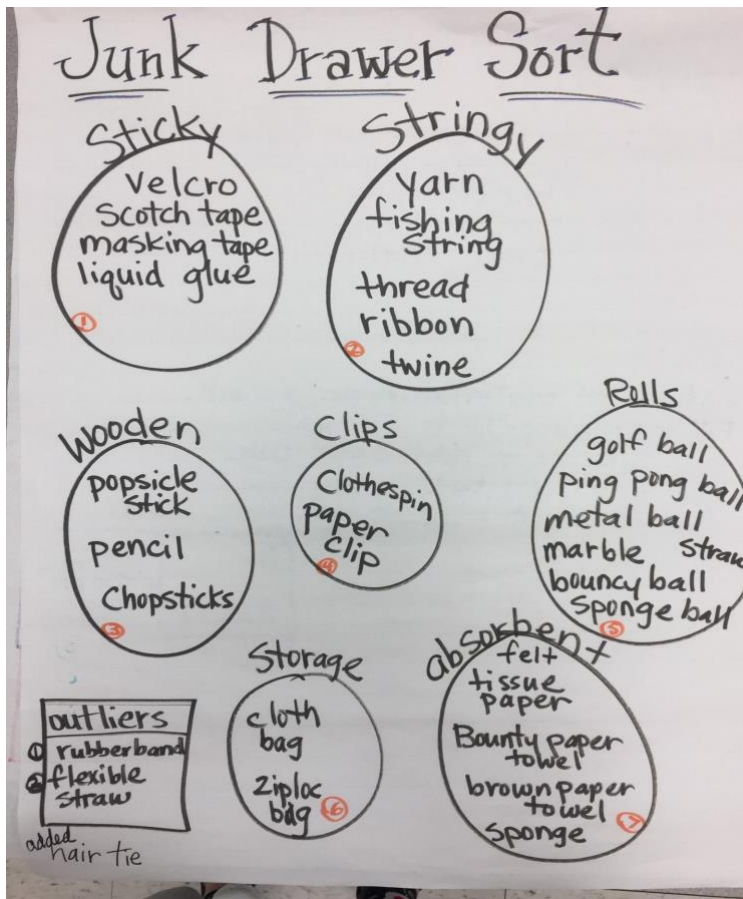 Junk Drawer Sort
Sticky
Velcro
Scotch tape
masking tape
liquid glue
①
Stringy
yarn
fishing
string
thread
ribbon
twine
②
Wooden
popsicle
stick
pencil
Chopsticks
③
Clips
Clothespin
paper
clip
④
Rolls
golf ball
ping pong ball
metal ball
marble straw
bouncy ball
sponge ball
⑤
Storage
cloth
bag
Ziploc
bag
⑥
absorbent
felt
tissue
paper
Bounty paper
towel
brown paper
towel
sponge
⑦
outliers
① rubberband
② flexible
straw
added
hair tie